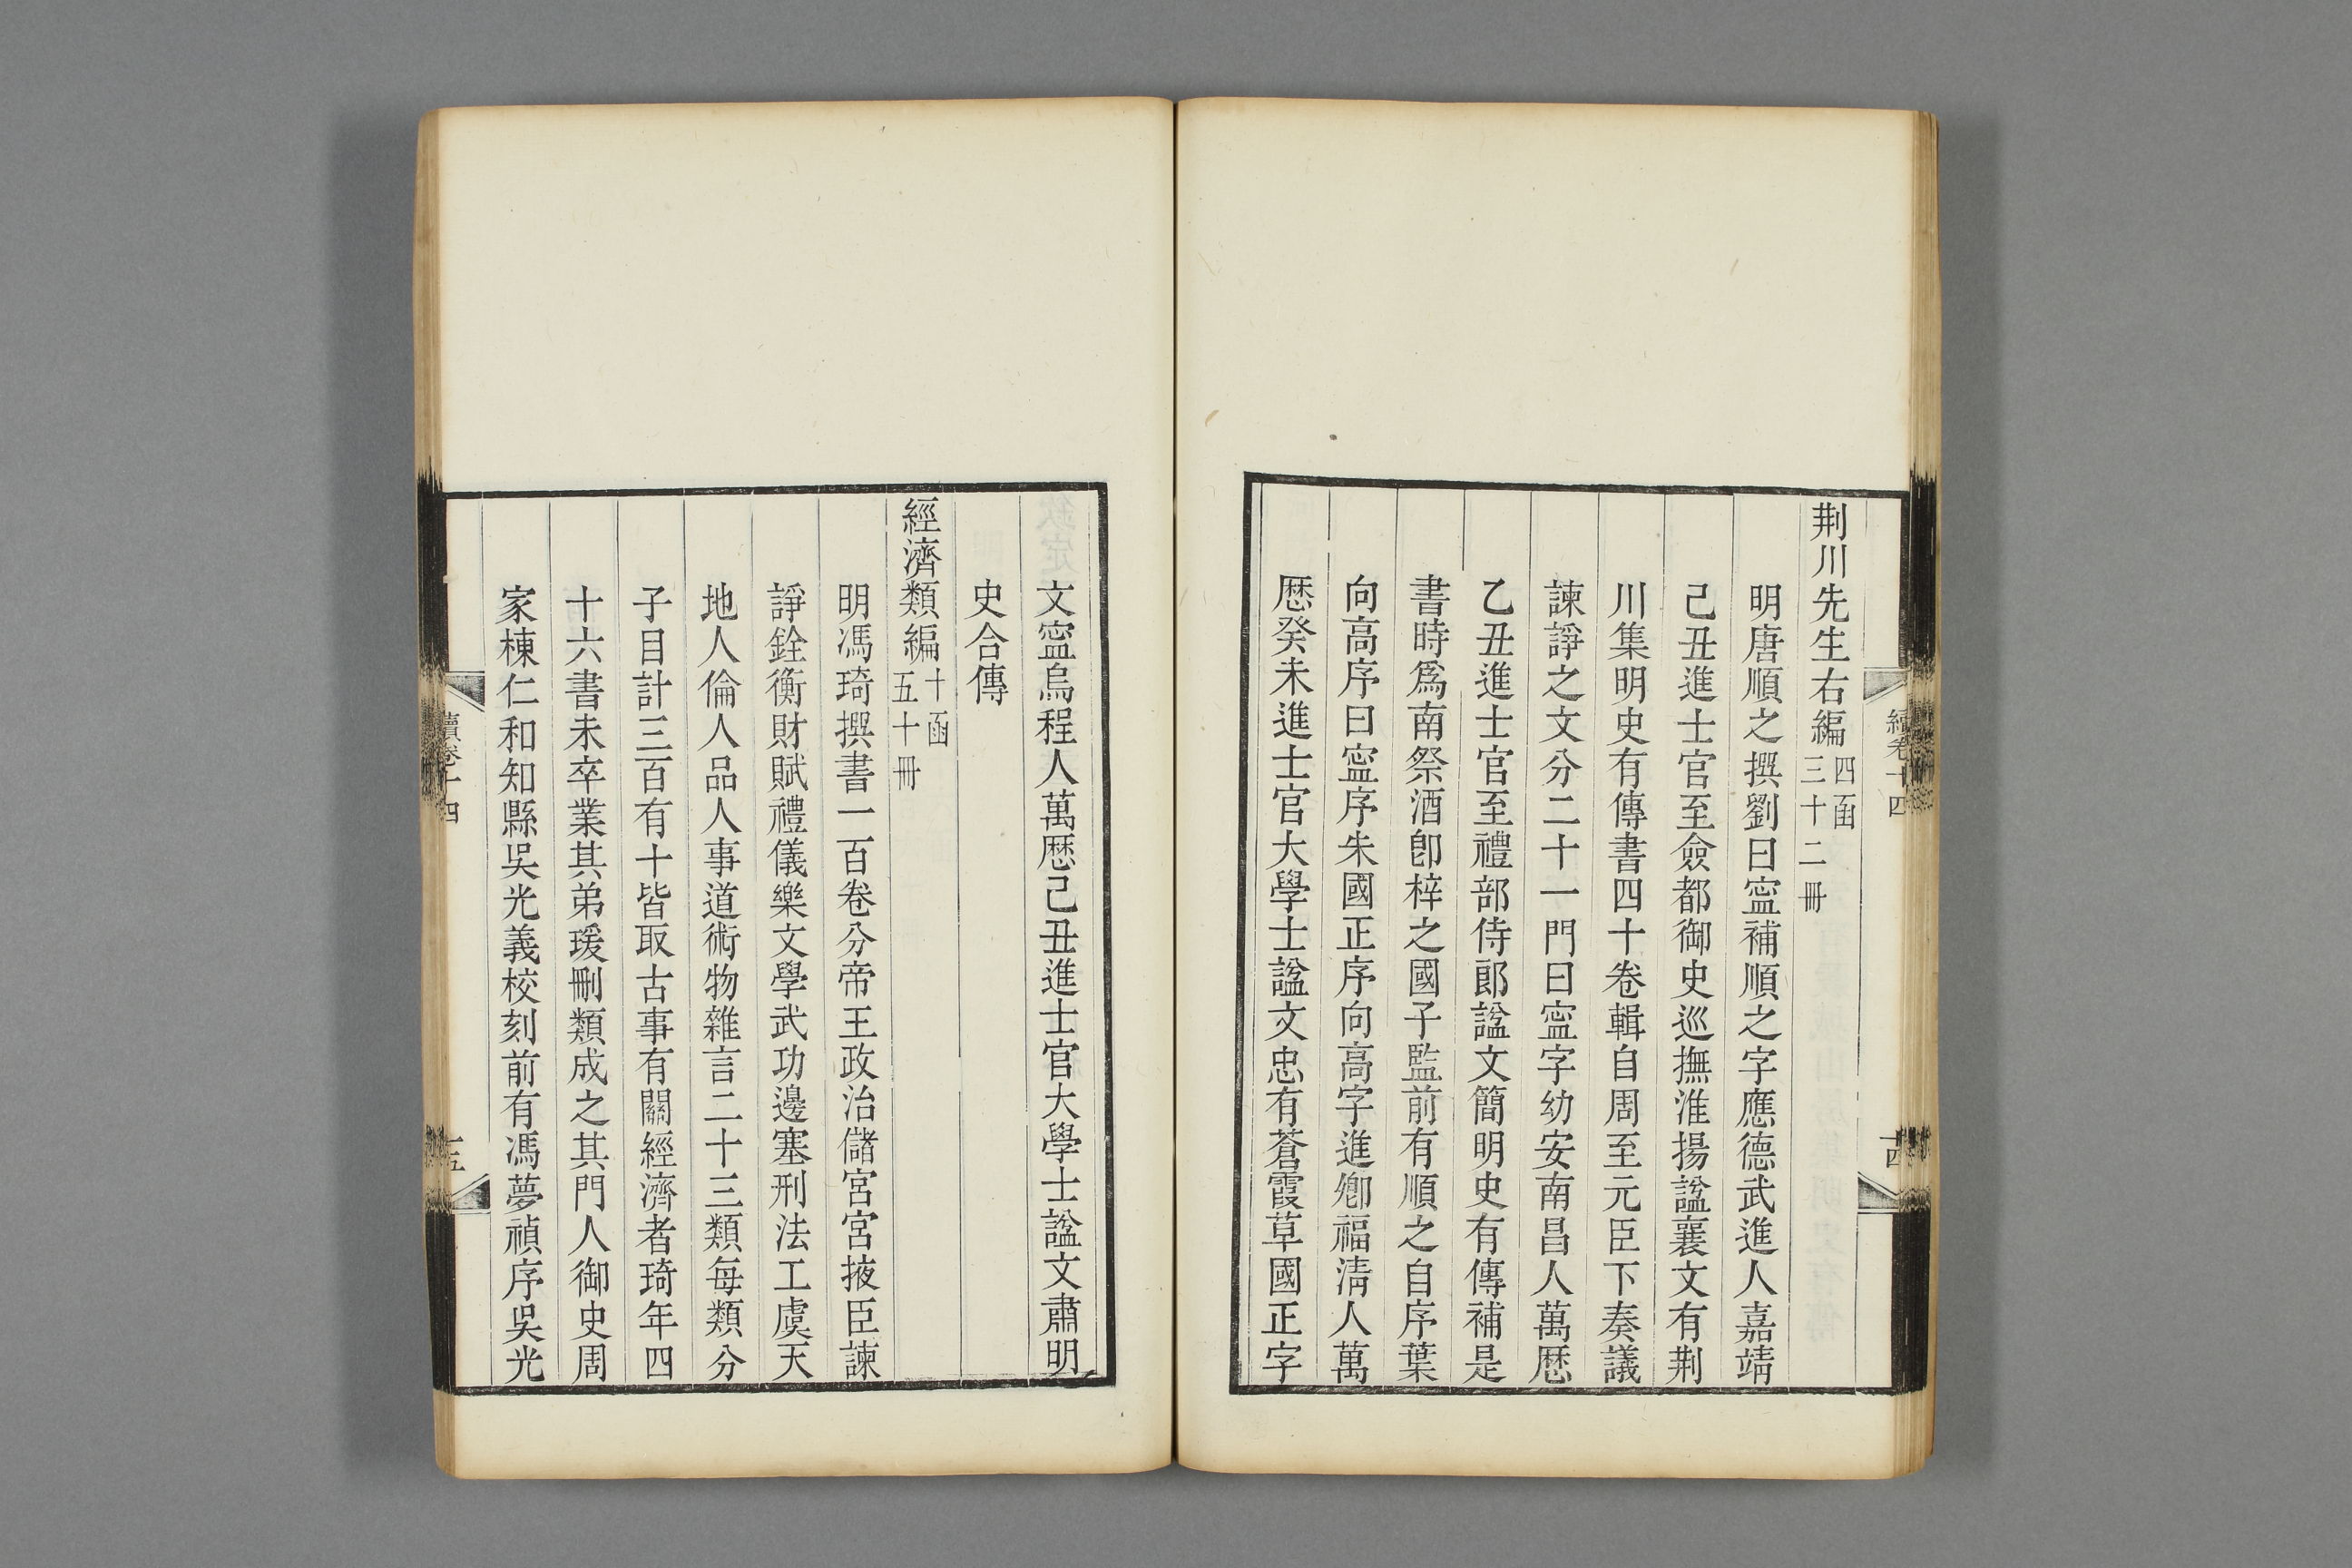 荆川先生右編四函三十二冊
明唐順之撰劉曰寍補順之字應德武進人嘉靖
己丑進士官至僉都御史巡撫淮揚諡襄文有荆
川集明史有傳書四十卷輯自周至元臣下奏議
諫諍之文分二十一門曰寍字幼安南昌人萬厯
乙丑進士官至禮部侍郎諡文簡明史有傳補是
書時爲南祭酒卽梓之國子監前有順之自序葉
向高序曰寍序朱國正序向高字進卿福淸人萬
厯癸未進士官大學士諡文忠有蒼霞草國正字
續卷十四
十四
文寍烏程人萬厯己丑進士官大學士諡文肅明
史合傳
經濟類編十函五十冊
明馮琦撰書一百卷分帝王政治儲宮宮掖臣諫
諍銓衡財賦禮儀樂文學武功邊塞刑法工虞天
地人倫人品人事道術物雜言二十三類每類分
子目計三百有十皆取古事有關經濟者琦年四
十六書未卒業其弟瑗刪類成之其門人御史周
家棟仁和知縣吳光義校刻前有馮夢禎序吳光
續卷十四
十五